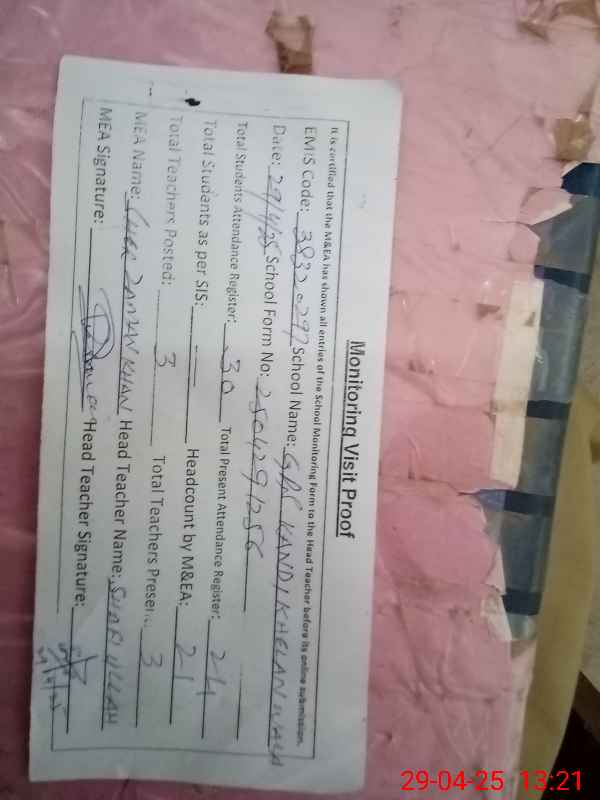 Monitoring Visit Proof
It is certified that the M&EA has shown all entries of the School Monitoring Form to the Head Teacher before its online submission.
EMIS Code: 38320297 School Name: GPS KANDI KHELAN WALA
Date: 29/4/25 School Form No: 2504291256
Total Students Attendance Register: 30 Total Present Attendance Register: 24
Total Students as per SIS: — Headcount by M&EA: 21
Total Teachers Posted: 3 Total Teachers Present: 3
MEA Name: SHER ZAMAN KHAN Head Teacher Name: SHAFI ULLAH
MEA Signature: Head Teacher Signature:
29-04-25 13:21